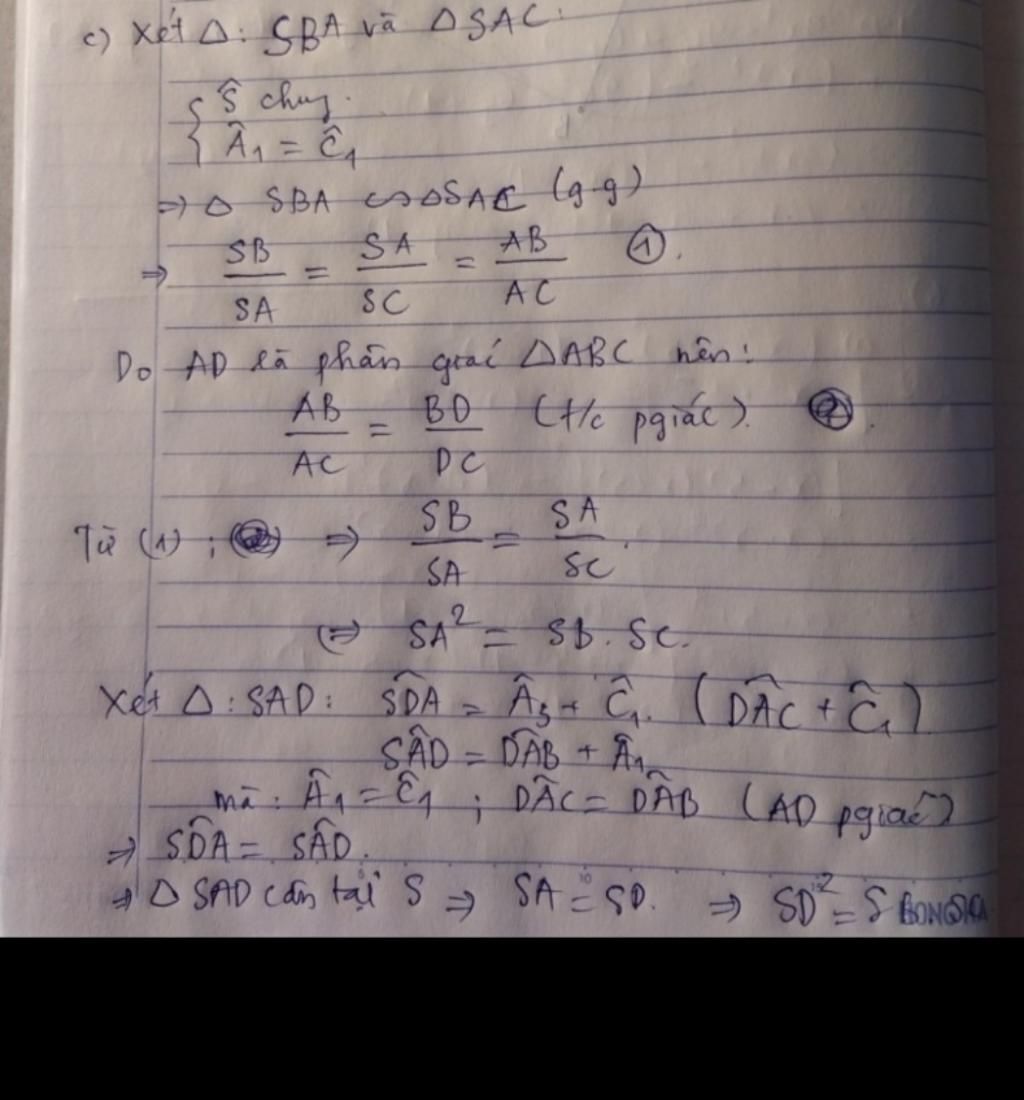 c) Xét Δ: SBA và ΔSAC:
{ Ŝ chug.
Â₁ = Ĉ₁
⇒ Δ SBA ∽ ΔSAC (g-g)
⇒ SB/SA = SA/SC = AB/AC ①.
Do AD là phân giác ΔABC nên:
AB/AC = BD/DC (t/c pgiác).
Từ (1); ⇒ SB/SA = SA/SC.
⇔ SA² = SB. SC.
Xét Δ: SAD: SD̂A = Â₃ + Ĉ₁. (DÂC + Ĉ₁)
SÂD = DÂB + Â₁
mà: Â₁ = Ĉ₁ ; DÂC = DÂB (AD pgiác)
⇒ SD̂A = SÂD.
⇒ Δ SAD cân tại S ⇒ SA = SD. ⇒ SD² = S